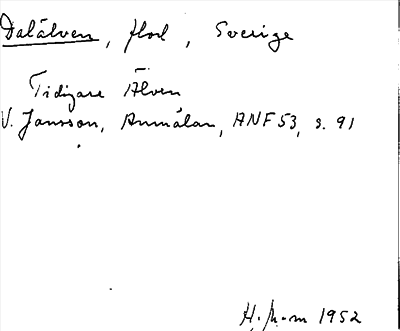 Dalälven, flod, Sverige
Tidigare Älven
V. Jansson, Anmälan, ANF 53, s. 91
1952